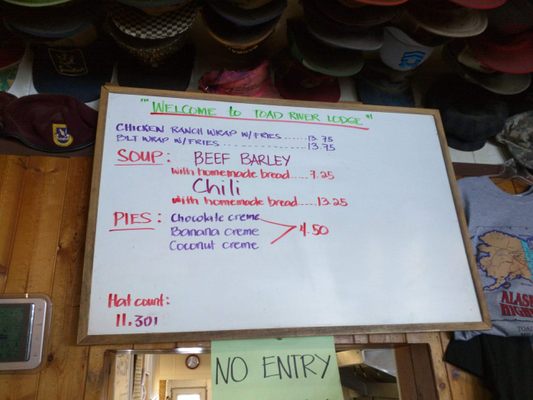 "Welcome to Toad River Lodge"
Chicken Ranch Wrap w/ Fries ...... 13.75
BLT Wrap w/ Fries ............ 13.75
Soup: Beef Barley
with homemade bread ..... 7.25
Chili
with homemade bread ..... 13.25
Pies: Chocolate creme
Banana creme 4.50
Coconut creme
Hat count:
11.301
NO ENTRY
ALASKA